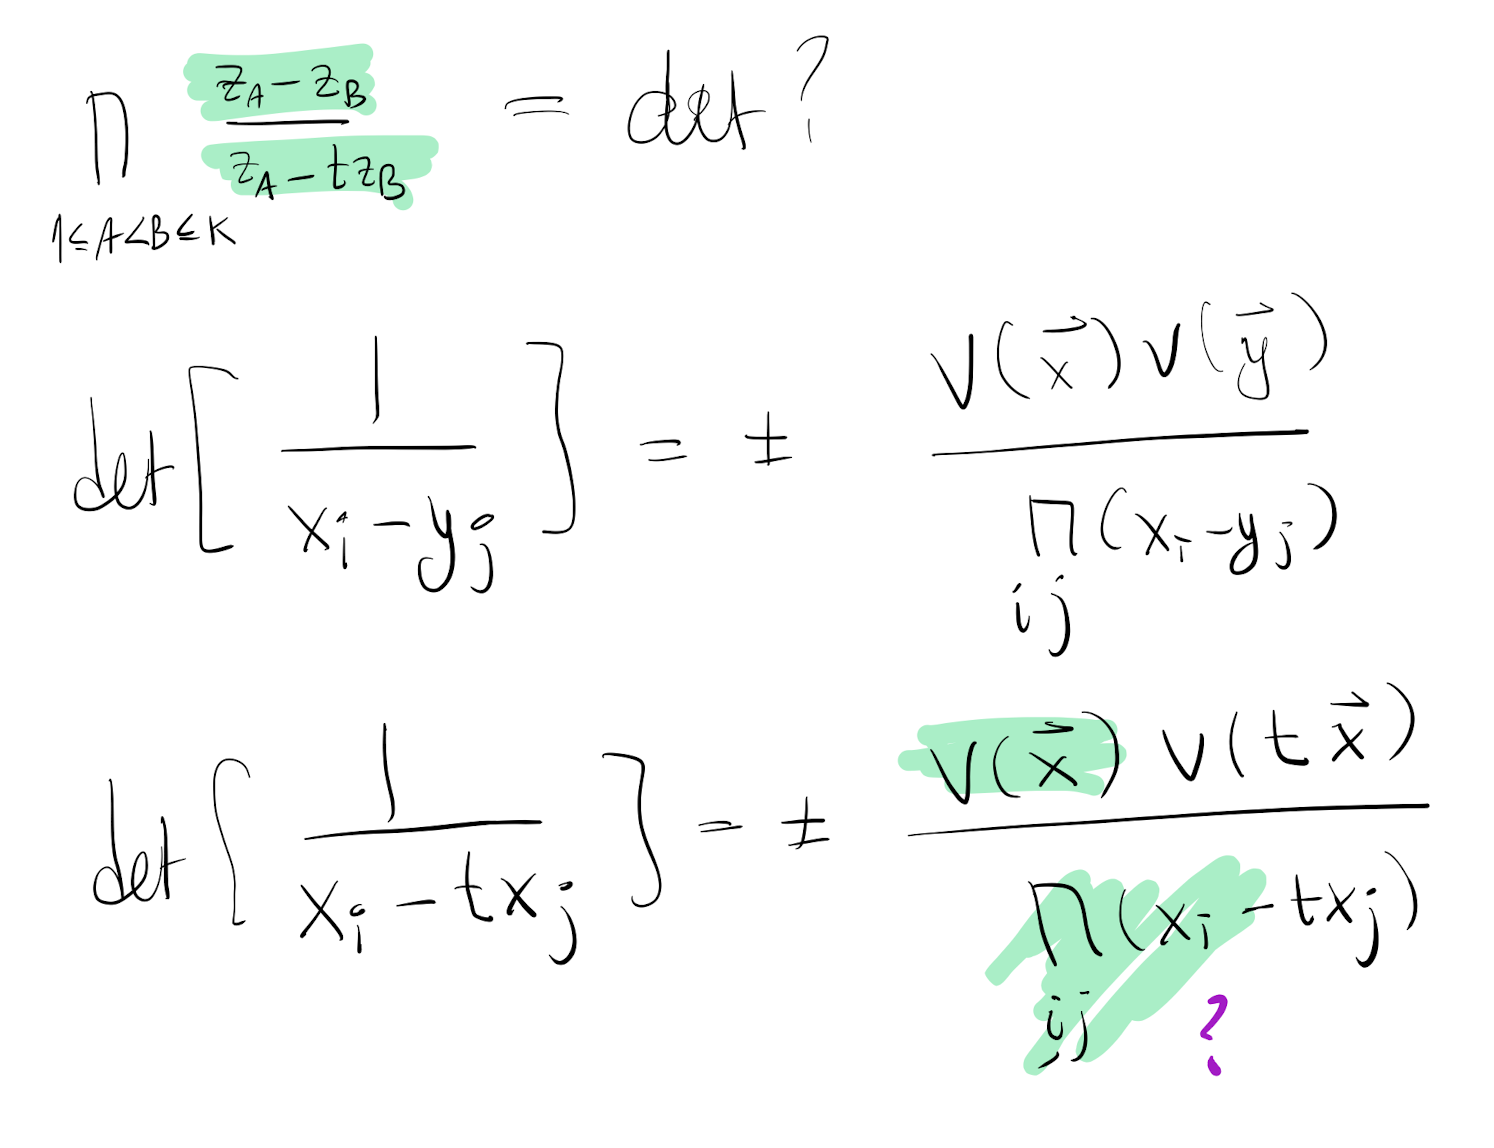 ∏_{1≤A<B≤K} (z_A − z_B)/(z_A − t z_B) = det?
det[1/(x_i − y_j)] = ± V(x⃗) V(y⃗) / ∏_{ij} (x_i − y_j)
det[1/(x_i − t x_j)] = ± V(x⃗) V(t x⃗) / ∏_{ij} (x_i − t x_j)
?